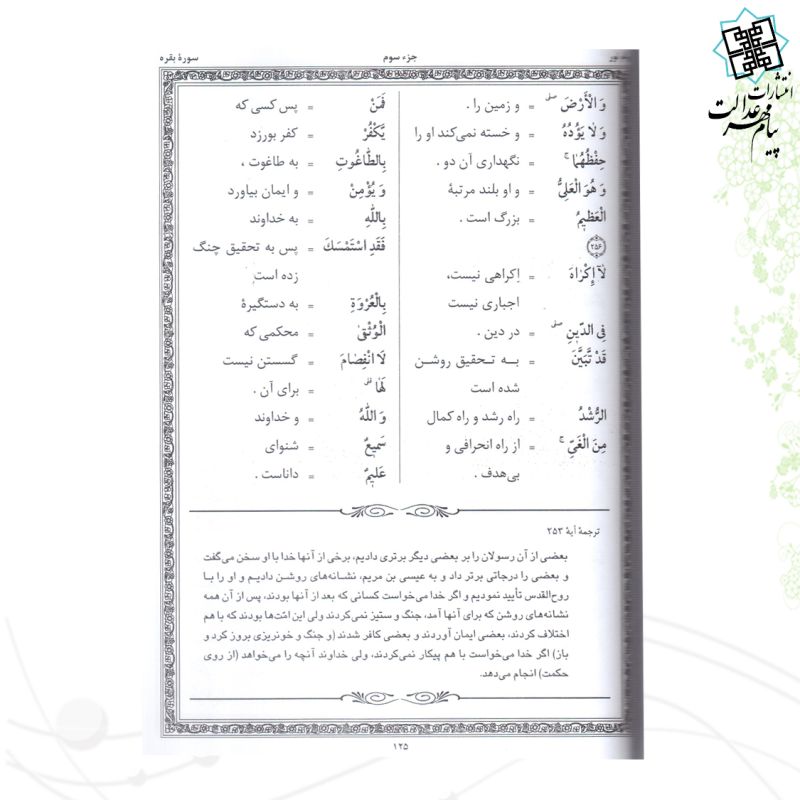 سورهٔ بقره
جزء سوم
وَ الْأَرْضَ ۖ = و زمین را .
وَ لَا يَؤُدُهُ = و خسته نمی‌کند او را
حِفْظُهُمَا ۚ = نگهداری آن دو .
وَ هُوَ الْعَلِيُّ = و او بلند مرتبهٔ
الْعَظِيمُ = بزرگ است .
﴿۲۵۶﴾
لَآ إِكْرَاهَ = اِکراهی نیست،
اجباری نیست
فِي الدِّينِ ۖ = در دین .
قَدْ تَّبَيَّنَ = بـه تـحقیق روشـن
شده است
الرُّشْدُ = راه رشد و راه کمال
مِنَ الْغَيِّ ۚ = از راه انحرافی و
بی‌هدف .
فَمَنْ = پس کسی که
يَّكْفُرْ = کفر بورزد
بِالطَّاغُوتِ = به طاغوت ،
وَ يُؤْمِنْ = و ایمان بیاورد
بِاللَّهِ = به خداوند
فَقَدِ اسْتَمْسَكَ = پس به تحقیق چنگ
زده است
بِالْعُرْوَةِ = به دستگیرهٔ
الْوُثْقَىٰ = محکمی که
لَا انْفِصَامَ = گسستن نیست
لَهَا ۗ = برای آن .
وَ اللَّهُ = و خداوند
سَمِيعٌ = شنوای
عَلِيمٌ = داناست .
ترجمهٔ آیهٔ ۲۵۳
بعضی از آن رسولان را بر بعضی دیگر برتری دادیم، برخی از آنها خدا با او سخن می‌گفت
و بعضی را درجاتی برتر داد و به عیسی بن مریم، نشانه‌های روشن دادیـم و او را بـا
روح‌القدس تأیید نمودیم و اگر خدا می‌خواست کسانی که بعد از آنها بودند، پس از آن همه
نشانه‌های روشن که برای آنها آمد، جنگ و ستیز نمی‌کردند ولی این امّت‌ها بودند که با هم
اختلاف کردند، بعضی ایمان آوردند و بعضی کافر شدند (و جنگ و خونریزی بروز کرد و
باز) اگر خدا می‌خواست با هم پیکار نمی‌کردند، ولی خداوند آنچه را می‌خواهد (از روی
حکمت) انجام می‌دهد.
۱۲۵
انتشارات
پیام مهر عدالت